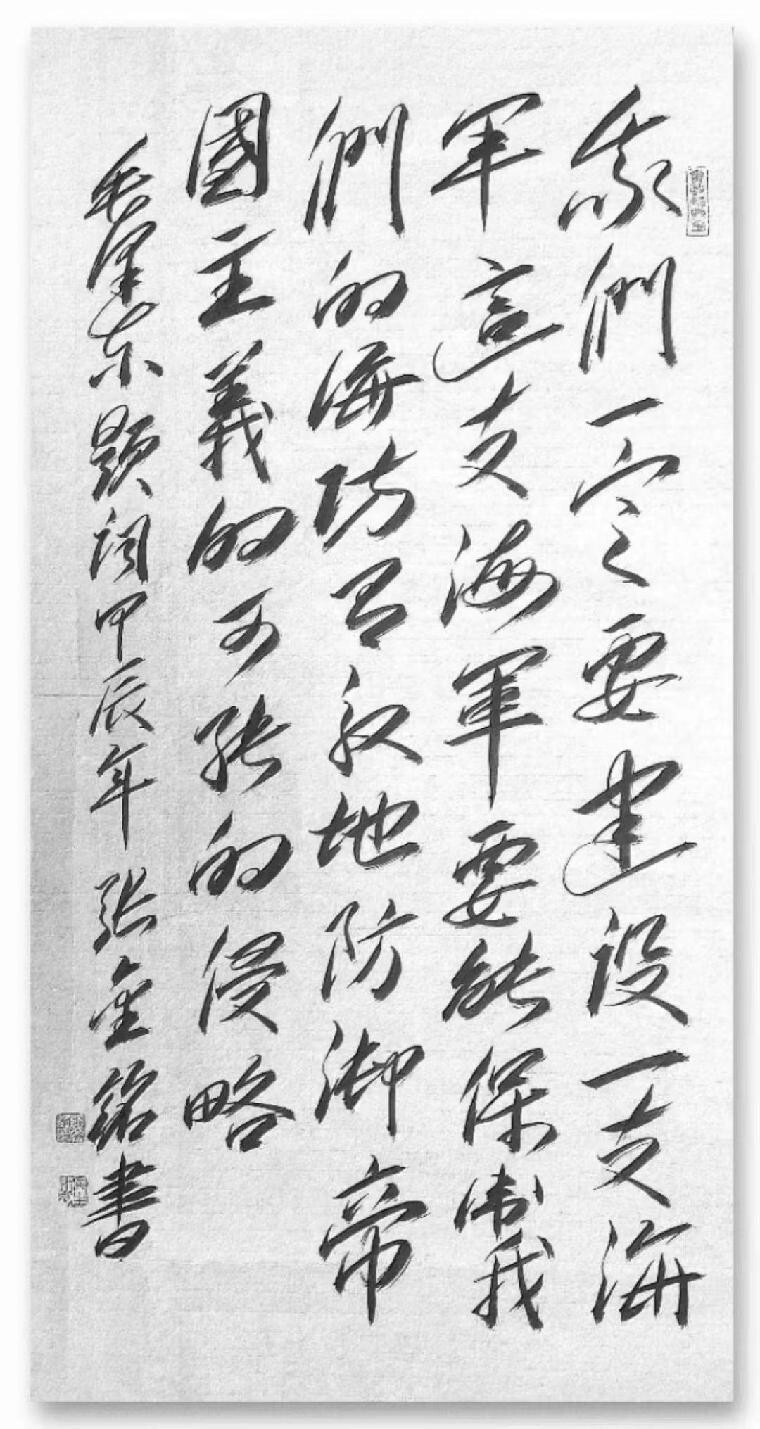 我們一定要建設一支海
軍這支海軍要能保衛我
們的海防有效地防御帝
國主義的可能的侵略
毛澤东題詞甲辰年張金銘書